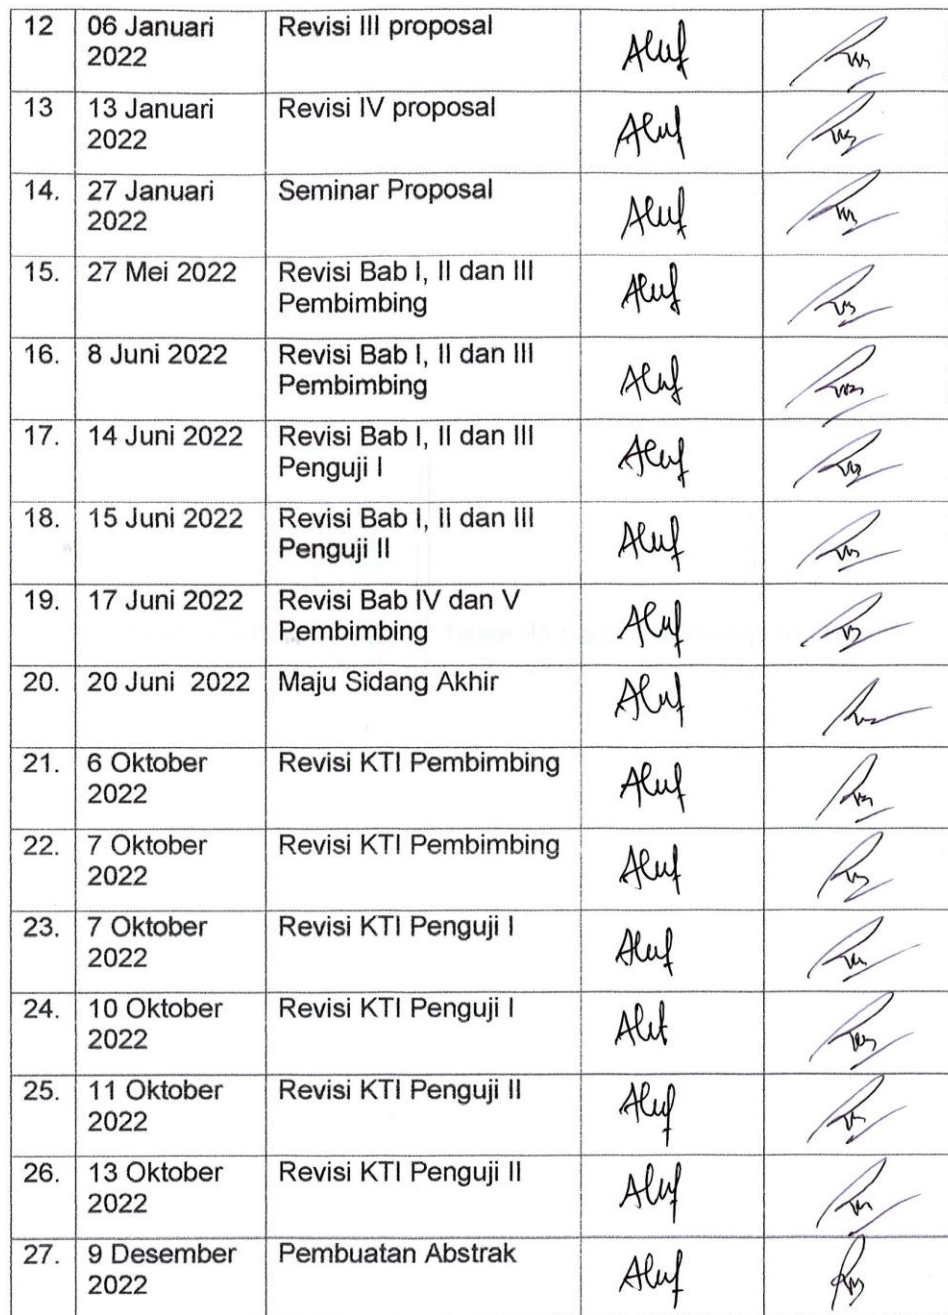 12 06 Januari Revisi III proposal
2022
13 13 Januari Revisi IV proposal
2022
14. 27 Januari Seminar Proposal
2022
15. 27 Mei 2022 Revisi Bab I, II dan III
Pembimbing
16. 8 Juni 2022 Revisi Bab I, II dan III
Pembimbing
17. 14 Juni 2022 Revisi Bab I, II dan III
Penguji I
18. 15 Juni 2022 Revisi Bab I, II dan III
Penguji II
19. 17 Juni 2022 Revisi Bab IV dan V
Pembimbing
20. 20 Juni 2022 Maju Sidang Akhir
21. 6 Oktober Revisi KTI Pembimbing
2022
22. 7 Oktober Revisi KTI Pembimbing
2022
23. 7 Oktober Revisi KTI Penguji I
2022
24. 10 Oktober Revisi KTI Penguji I
2022
25. 11 Oktober Revisi KTI Penguji II
2022
26. 13 Oktober Revisi KTI Penguji II
2022
27. 9 Desember Pembuatan Abstrak
2022